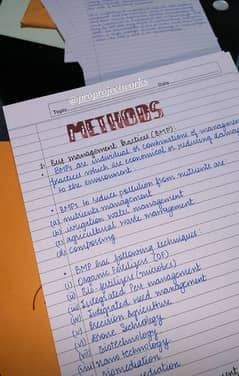 @proprojectworks
Topic
Date
METHODS
Best management Practices (BMP):
BMPs are individual or combinations of management
practices which are economical in reducing damage
to the environment
BMPs to reduce pollution from nutrients are:
(a) nutrients management
(b) irrigation water management
(c) agricultural waste management
(d) composting
BMP has following techniques:
(i) Organic fertilizers (OF)
(ii) Bio-fertilizers (microbes)
(iii) Integrated Pest management
(iv) Integrated weed management
(v) Precision Agriculture
(vi) Technology
(vii) Biotechnology
(viii) Nano technology